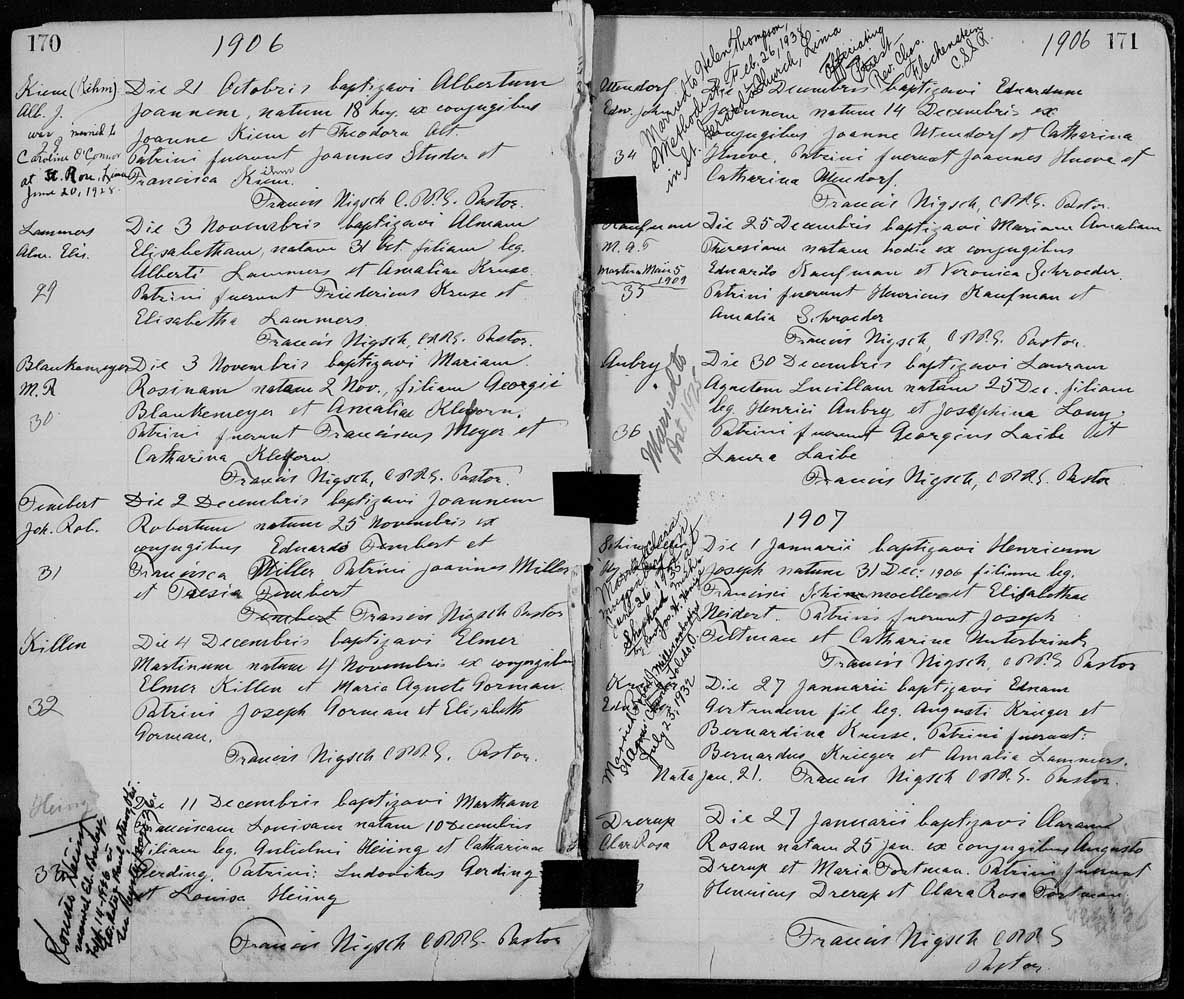 170
1906
Kiene (Kehm)
Alb. J.
was married to
29
Caroline O'Connor
at St. Rose, Lima
June 20, 1928.
Die 21 Octobris baptizavi Albertum
Joannem, natum 18 huj. ex conjugibus
Joanne Kiene et Theodora Alt.
Patrini fuerunt Joannes Studer et
Francisca Kiene.
Francis Nigsch C.PP.S. Pastor.
Lammers
Alm. Elis.
29
Die 3 Novembris baptizavi Almam
Elisabetham, natam 31 Oct. filiam leg.
Alberti Lammers et Amaliae Kruse.
Patrini fuerunt Friedericus Kruse et
Elisabetha Lammers
Francis Nigsch, C.PP.S. Pastor.
Blankemeyer
M. R
30
Die 3 Novembris baptizavi Mariam
Rosinam natam 2 Nov., filiam Georgii
Blankemeyer et Amaliae Klehorn.
Patrini fuerunt Franciscus Meyer et
Catharina Klehorn
Francis Nigsch, C.PP.S. Pastor.
Tembert
Joh. Rob.
31
Die 2 Decembris baptizavi Joannem
Robertum natum 25 Novembris ex
conjugibus Eduardo Tembert et
Francisca Miller Patrini Joannes Miller
et Tresia Tembert
Tembert Francis Nigsch Pastor
Killen
32
Die 4 Decembris baptizavi Elmer
Martinum natum 4 Novembris ex conjugibus
Elmer Killen et Maria Agnete Gorman.
Patrini Joseph Gorman et Elisabeth
Gorman.
Francis Nigsch C.PP.S. Pastor.
Heiing
33
Louisa Heiing
married
Sept. 14, 1926
Die 11 Decembris baptizavi Martham
Franciscam Louisam natam 10 Decembris
filiam leg. Gulielmi Heiing et Catharinae
Gerding. Patrini: Ludovikus Gerding
et Louisa Heiing
Francis Nigsch C.PP.S. Pastor
1906 171
Married to Helen Thompson,
a Methodist, Feb. 26, 1938
in St. Gerard Church, Lima
Officiating
Priest
Rev. Chas.
Flechenstein
C.SS.R.
Utendorf
Edw. John
34
Decembris baptizavi Eduardum
Joannem natum 14 Decembris ex
conjugibus Joanne Utendorf et Catharina
Hueve. Patrini fuerunt Joannes Hueve et
Catharina Utendorf.
Francis Nigsch, C.PP.S. Pastor.
Kaufman
M. A. T
Mortua Maii 5
1909
35
Die 25 Decembris baptizavi Mariam Amaliam
Theresiam natam hodie ex conjugibus
Eduardo Kaufman et Veronica Schroeder.
Patrini fuerunt Henricus Kaufman et
Amalia Schroeder
Francis Nigsch, C.PP.S. Pastor.
Aubry
36
Married to
Oct. 1925
Die 30 Decembris baptizavi Lauram
Agnetem Lucillam natam 25 Dec. filiam
leg. Henrici Aubry et Josephina Lony.
Patrini fuerunt Georgius Laibe et
Laura Laibe
Francis Nigsch, C.PP.S. Pastor
1907
Die 1 Januarii baptizavi Henricum
Joseph natum 31 Dec. 1906 filium leg.
Francisci Schimmoeller et Elisabethae
Neidert. Patrini fuerunt Joseph
Feltman et Catharina Unterbrink
Francis Nigsch, C.PP.S Pastor
July 23, 1932
Die 27 Januarii baptizavi Ednam
Gertrudem fil leg. Augusti Krieger et
Bernardina Kruse. Patrini fuerunt:
Bernardus Krieger et Amalia Lammers.
Nata Jan. 21. Francis Nigsch C.PP.S. Pastor.
Drerup
Clar. Rosa
Die 27 Januarii baptizavi Claram
Rosam natam 25 Jan. ex conjugibus Augusto
Drerup et Maria Fortman. Patrini fuerunt
Henricus Drerup et Clara Rosa Fortman
Francis Nigsch C.PP.S
Pastor.